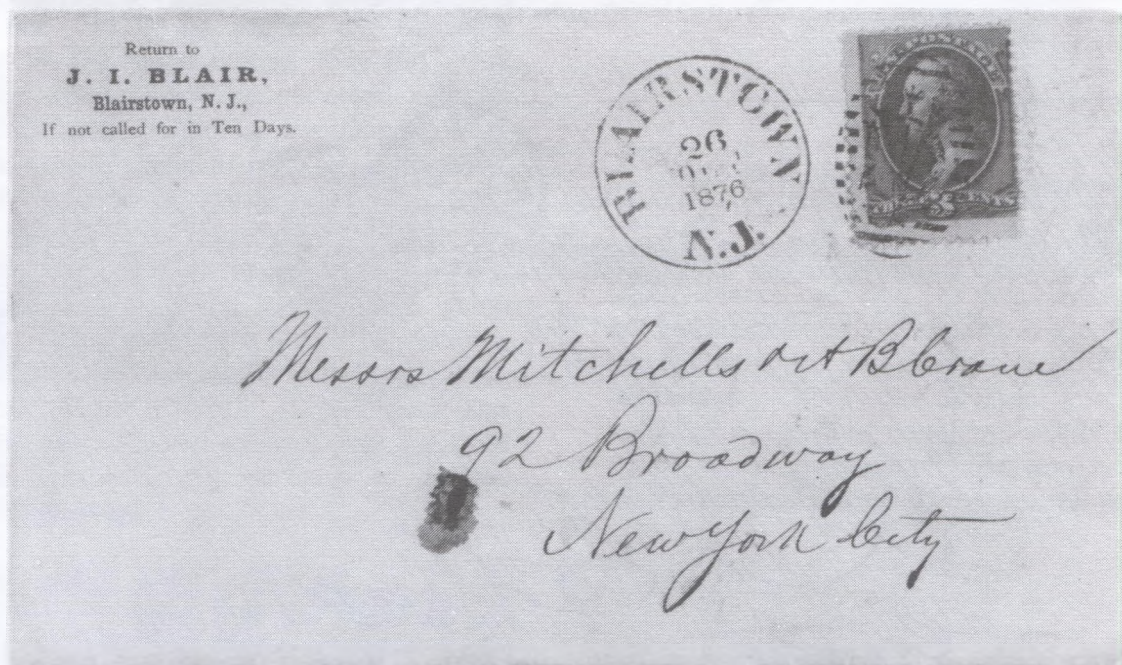 Return to
J. I. BLAIR,
Blairstown, N. J.,
If not called for in Ten Days.
BLAIRSTOWN
26
1876
N.J.
POSTAGE
CENTS
Messrs Mitchells & A B Crane
92 Broadway
New York City